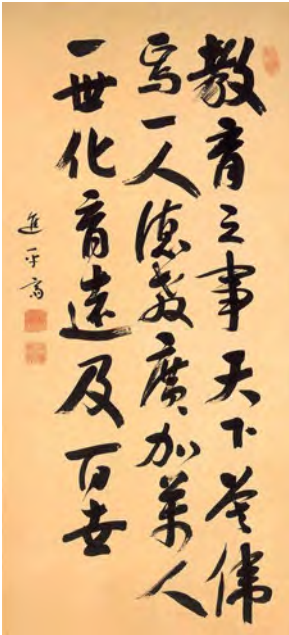 教育之事天下莫偉
焉一人徳教廣加萬人
一世化育遠及百世
進乎斎